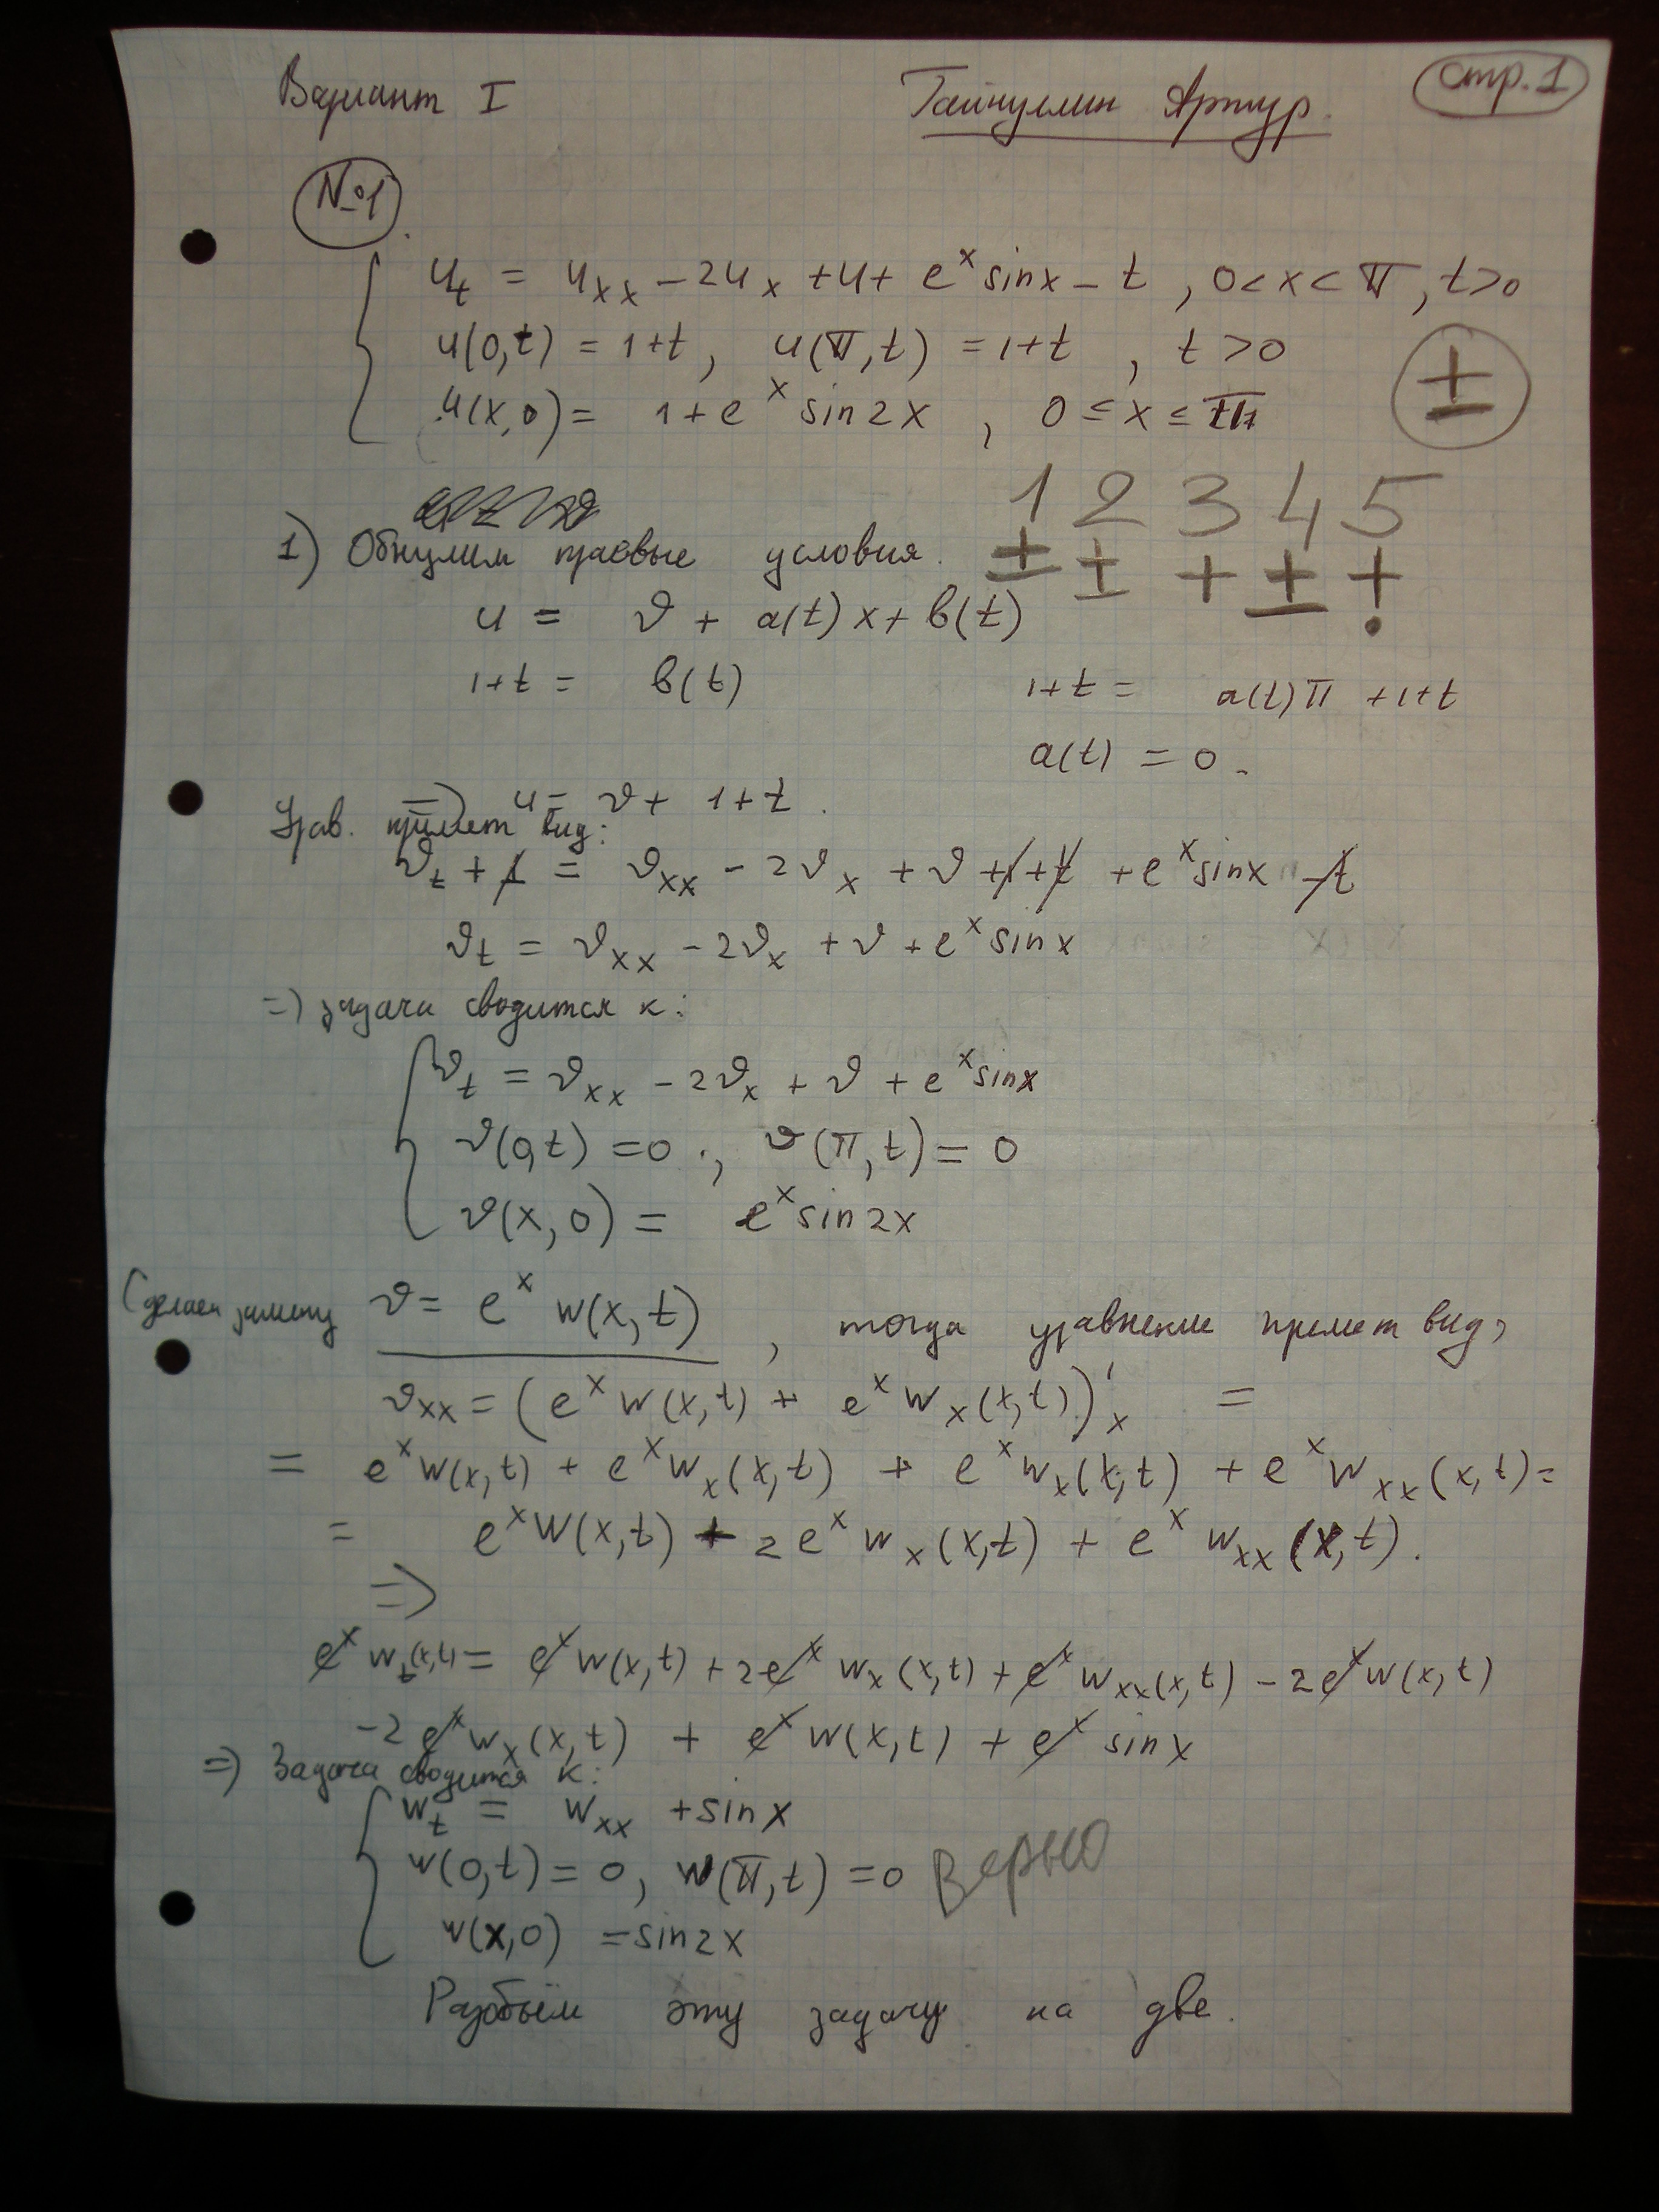 Вариант I
Гайнуллин Артур.
стр. 1
№1
u_t = u_xx - 2u_x + u + e^x sinx - t , 0 < x < π, t>0
u(0,t) = 1+t, u(π,t) = 1+t , t > 0
u(x,0) = 1 + e^x sin2x , 0 ≤ x ≤ π
±
1 2 3 4 5
± ± + ± +!
1) Обнулим краевые условия.
u = v + a(t)x + b(t)
1+t = b(t) 1+t = a(t)π + 1+t
a(t) = 0.
=> u = v + 1+t.
Урав. примет вид:
v_t + 1 = v_xx - 2v_x + v + 1 + t + e^x sinx - t
v_t = v_xx - 2v_x + v + e^x sinx
=> задача сводится к:
v_t = v_xx - 2v_x + v + e^x sinx
v(0,t) = 0, v(π,t) = 0
v(x,0) = e^x sin2x
Сделаем замену v = e^x w(x,t) , тогда уравнение примет вид,
v_xx = (e^x w(x,t) + e^x w_x(x,t))'_x =
= e^x w(x,t) + e^x w_x(x,t) + e^x w_x(x,t) + e^x w_xx(x,t) =
= e^x w(x,t) + 2e^x w_x(x,t) + e^x w_xx(x,t).
=>
e^x w_t(x,t) = e^x w(x,t) + 2e^x w_x(x,t) + e^x w_xx(x,t) - 2e^x w(x,t)
-2e^x w_x(x,t) + e^x w(x,t) + e^x sinx
=> Задача сводится к:
w_t = w_xx + sinx
w(0,t) = 0, w(π,t) = 0 верно
w(x,0) = sin2x
Разобьём эту задачу на две.